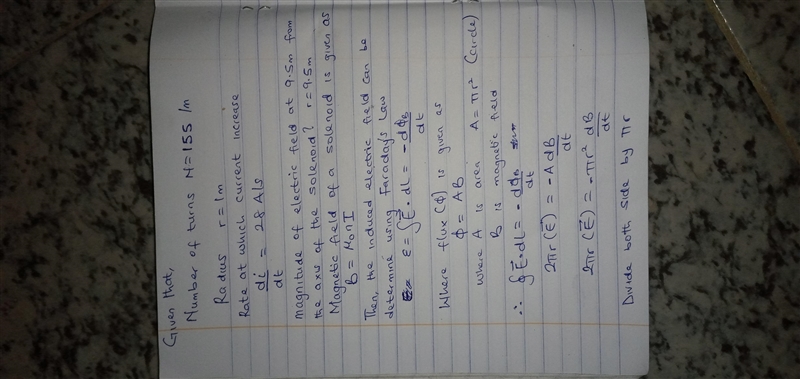 Given that,
Number of turns N = 155 /m
Radius r = 1m
Rate at which current increase
di/dt = 28 A/s
magnitude of electric field at 9.5m from
the axis of the solenoid? r = 9.5m
Magnetic field of a solenoid is given as
B = μ₀nI
Then, the induced electric field can be
determine using Faraday's law
ε = ∮E⃗ • dl = -dΦB/dt
Where flux (Φ) is given as
Φ = AB
where A is area A = πr² (circle)
B is magnetic field
∴ ∮E⃗ • dl = -dΦB/dt
2πr (E⃗) = -A dB/dt
2πr (E⃗) = -πr² dB/dt
Divide both side by πr